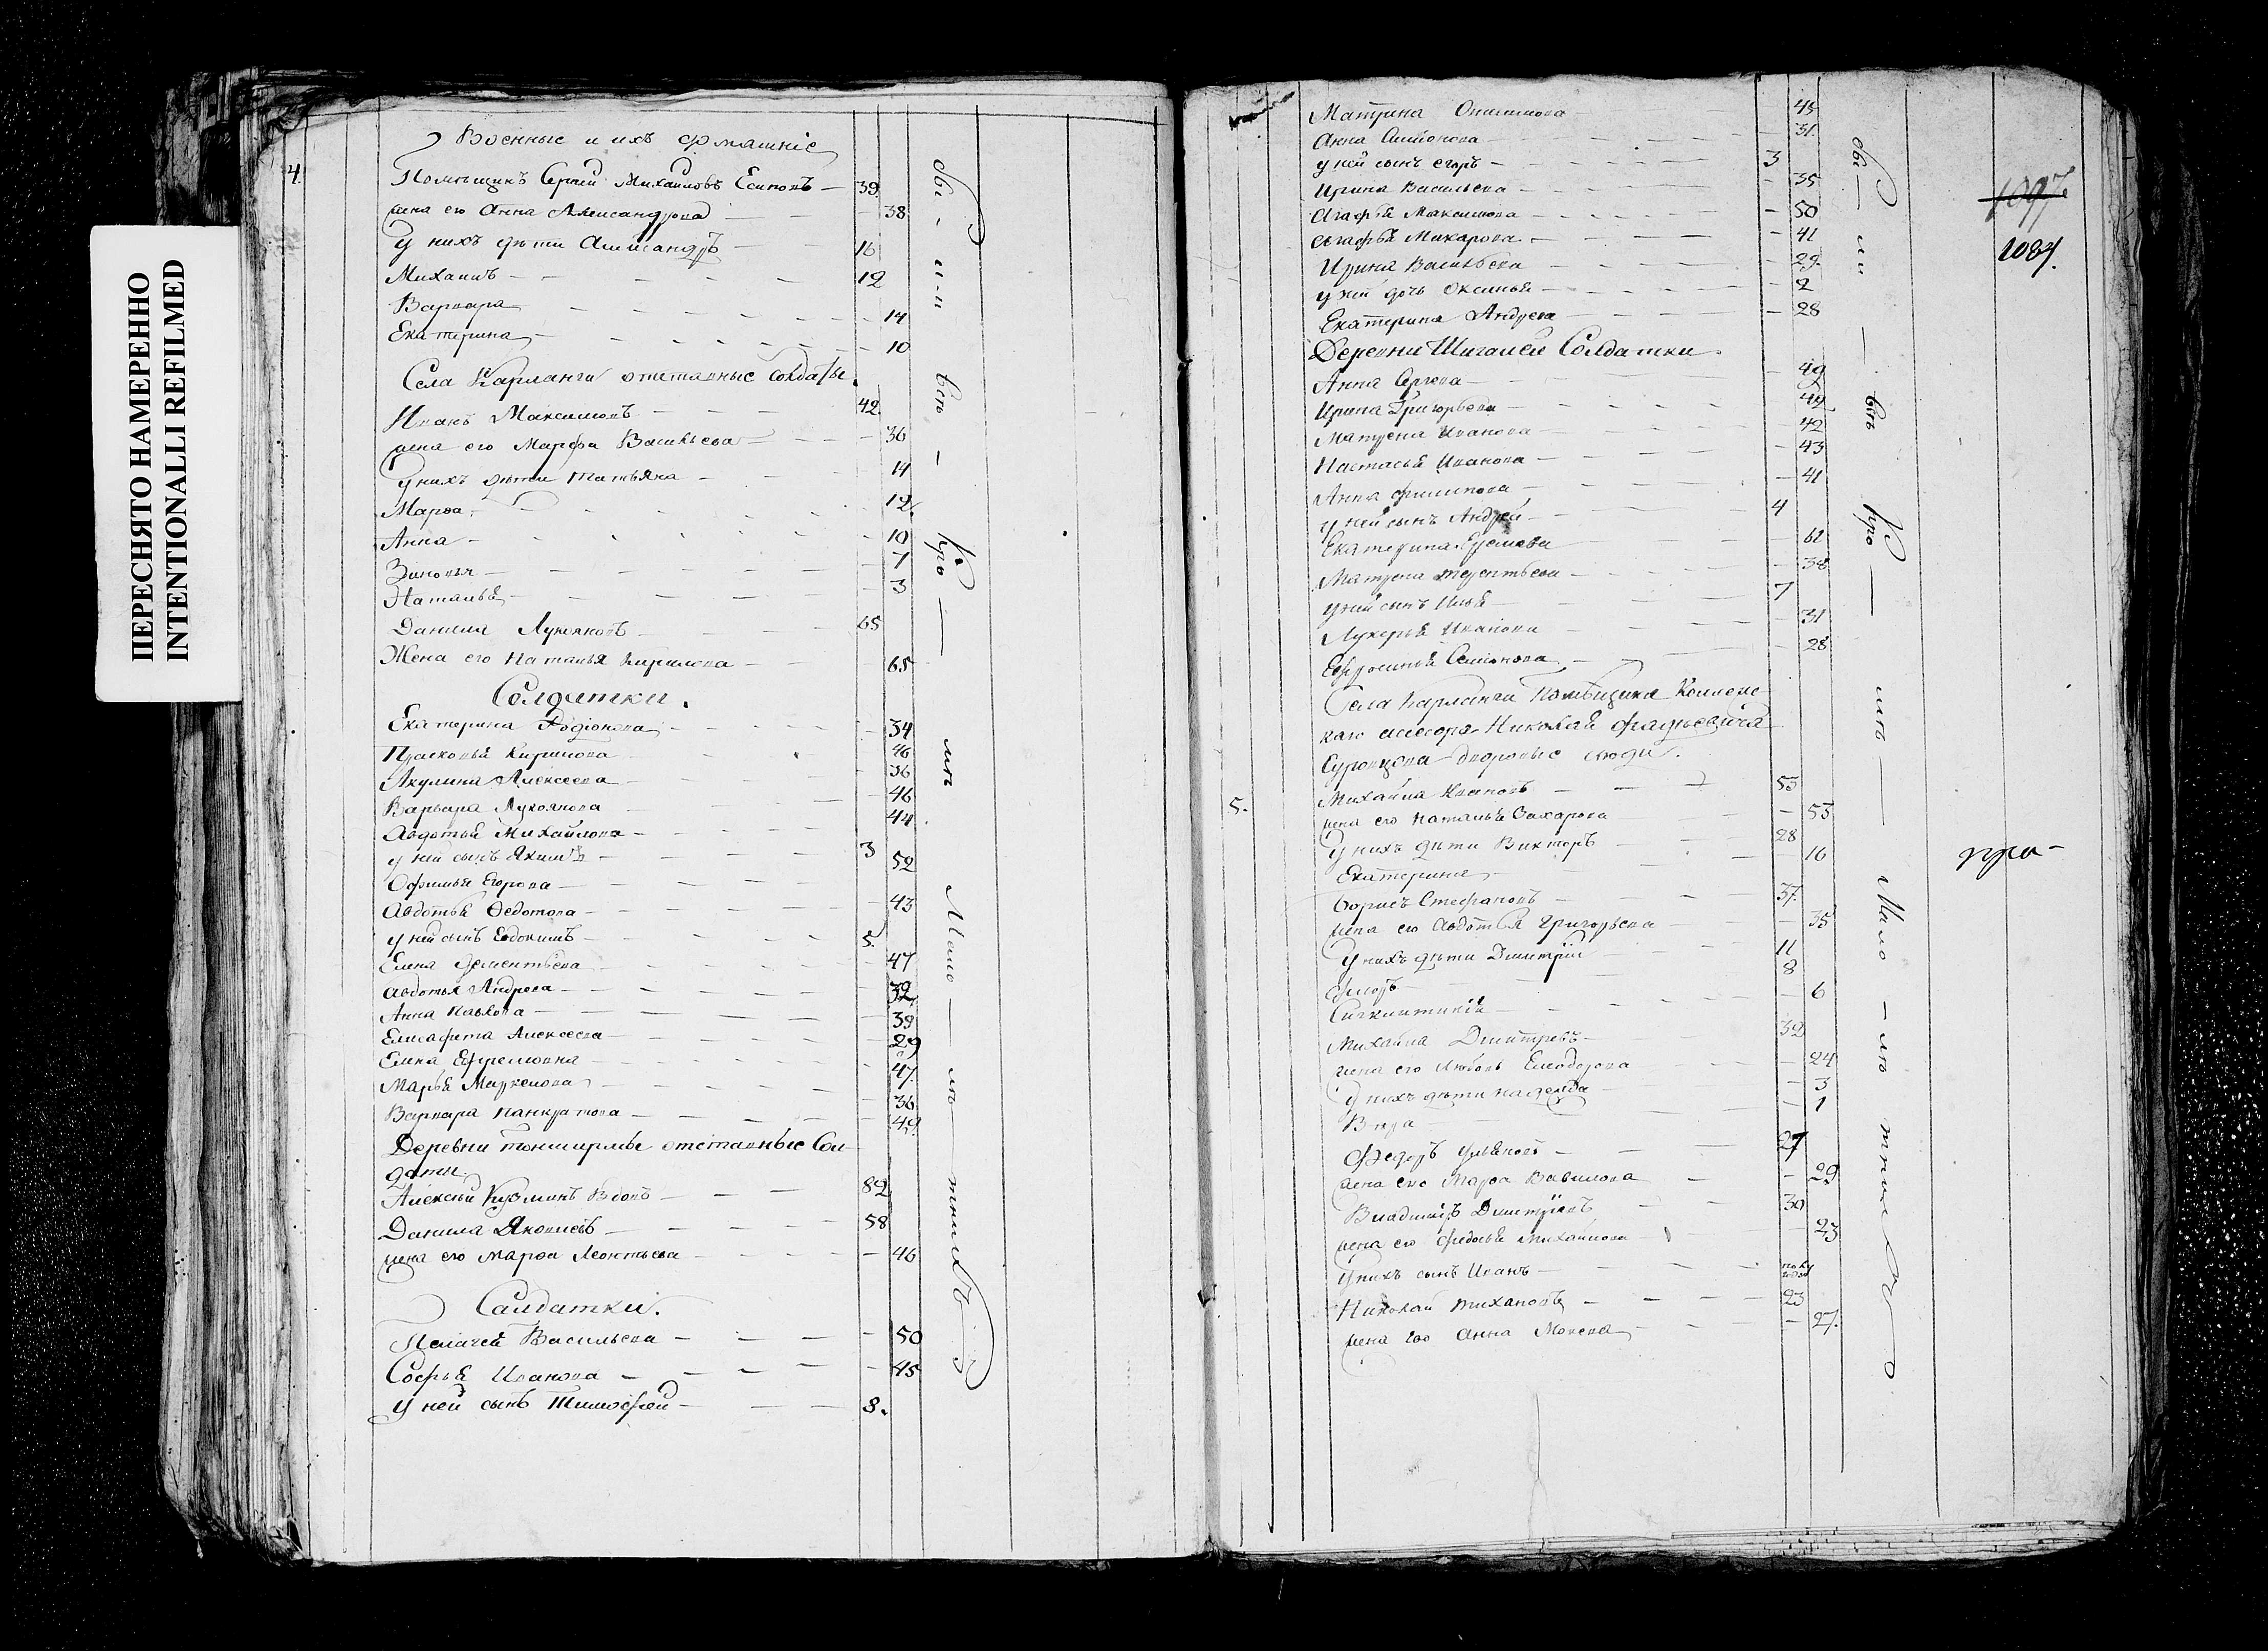 ПЕРЕСНЯТО НАМЕРЕННО
INTENTIONALLI REFILMED
Военные и ихъ домашніе
4. Помѣщикъ Сергѣй Михайловъ Есиповъ 39
жена его Анна Александрова 38
у нихъ дѣти Александръ 16
Михаилъ 12
Варвара 14
Екатерина 10
Села Карланги отставные солдаты.
Иванъ Максимовъ 42
жена его Марфа Васильева 36
у нихъ дѣти Татьяна 14
Марѳа 12
Анна 10
Зиновья 7
Наталья 3
Данила Лукояновъ 65
Жена его Наталья Кирилова 65
Солдатки.
Екатерина Родіонова 34
Прасковья Кирилова 46
Акулина Алексеева 36
Варвара Лукоянова 46
Авдотья Михайлова 44
у ней сынъ Якимъ 3
Офимья Егорова 52
Авдотья Ѳедотова 43
у ней сынъ Евдокимъ 5
Елена Дементьева 47
Авдотья Андрева 32
Анна Павлова 39
Елисафета Алексеева 29
Елена Ефремовна 47
Марья Маркелова
Варвара Панкратова 36
49
Деревни отставные Сол-
даты
Алексѣй Кузминъ вдовъ 82
Данила Яковлевъ 58
жена его Марѳа Леонтьева 46
Салдатки.
Пелагея Васильева 50
Софья Иванова 45
У ней сынъ Тимофей 8.
Матрина 45
Анна Симіонова 31.
у ней сынъ Егоръ 3
Ирина Васильева 35
Агафья Максимова 50
Агафья Макарова 41
Ирина Васильева 29.
у ней дочь Оксинья 2
Екатерина Андреева 28
Деревни Шигалеи Солдатки.
Анна Сергева 49
Ирина Григорьева 44
Матрена Иванова 42
Настасья Иванова 43
Анна Филипова 41
у ней сынъ Андрей 4
Екатерина Ефремова 61
Матрена Терентьева 38
у ней сынъ Илья 7
Лукерья Иванова 31
Ефросинья Семіонова 28
Села Карланги Помѣщика Коллежс-
каго асесора Николая Фадѣевича
Суровцова дворовые люди.
5. Михайла Ивановъ 53
жена его Наталья Захарова 53
у нихъ дѣти Викторъ 28
Екатерина 16
Борисъ Стефановъ 37.
жена его Авдотья Григорьева 35
у нихъ дѣти Димитрій 11
Флоръ 8
6
Михайла Дмитревъ 32
жена его Любовь 24
у нихъ дѣти Надежда 3
Вера 1
Федоръ Ульяновъ 27
жена его Марѳа Вавилова 29
Владимиръ Димитріевъ 30
жена его Федосья Михайлова 23
у нихъ сынъ Иванъ полу
года
Николай Тихановъ 23
жена его Анна Мокева 27.
1097
1084.
пра-